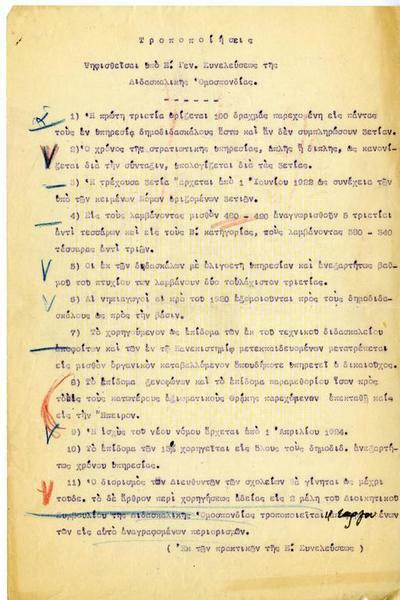 Τροποποιήσεις
Ψηφισθεῖσαι ὑπὸ Η΄. Γεν. Συνελεύσεως τῆς
Διδασκαλικῆς Ὁμοσπονδίας.
1) Ἡ πρώτη τριετία ὁρίζεται 100 δραχμάς παρεχομένη εἰς πάντας
τοὺς ἐν ὑπηρεσίᾳ δημοδιδασκάλους ἔστω καὶ ἄν δεν συμπληρώσουν 3ετίαν.
2) Ὁ χρόνος τῆς στρατιωτικῆς ὑπηρεσίας, ἁπλῆς ἤ διπλῆς, ὡς κανονί-
ζεται διὰ τὴν σύνταξιν, ὑπολογίζεται διὰ τὰς 3ετίας.
3) Ἡ τρέχουσα 3ετία ἄρχεται ἀπὸ 1 Ἰουνίου 1922 ὡς συνέχεια τῶν
ὑπὸ τῶν κειμένων Νόμων ὁριζομένων 3ετιῶν.
4) Εἰς τοὺς λαμβάνοντας μισθὸν 400 - 420 ἀναγνωρισθοῦν 5 τριετίαι
ἀντὶ τεσσάρων καὶ εἰς τοὺς Β΄ κατηγορίας, τοὺς λαμβάνοντας 380 - 340
τέσσαρας ἀντὶ τριῶν.
5) Οἱ ἐκ τῶν διδασκάλων μὲ ὀλιγοετῆ ὑπηρεσίαν καὶ ἀνεξαρτήτως βαθ-
μοῦ τοῦ πτυχίου των λαμβάνουν δύο τοὐλάχιστον τριετίας.
6) Αἱ νηπιαγωγοὶ αἱ πρὸ τοῦ 1920 ἐξομοιοῦνται πρὸς τοὺς δημοδιδα-
σκάλους ὡς πρὸς τὴν βάσιν.
7) Τὸ χορηγούμενον ὡς ἐπίδομα τῶν ἐκ τοῦ τεχνικοῦ διδασκαλείου
ἀποφοίτων καὶ τῶν ἐν τῷ Πανεπιστημίῳ μετεκπαιδευομένων μετατρέπεται
εἰς μισθὸν ὀργανικὸν καταβαλλόμενον ὁπουδήποτε ὑπηρετεῖ ὁ δικαιοῦχος.
8) Τὸ ἐπίδομα ξενοφώνων καὶ τὸ ἐπίδομα παραμεθορίου ἴσον πρὸς
τοὺς κατωτέρους ἀξιωματικοὺς Θράκης παρεχόμενον ἐπεκταθῇ καὶ
εἰς τὴν Ἤπειρον.
9) Ἡ ἰσχὺς τοῦ νέου νόμου ἄρχεται ἀπὸ 1 Ἀπριλίου 1924.
10) Τὸ ἐπίδομα τῶν 15% χορηγεῖται εἰς ὅλους τοὺς δημοδιδ. ἀνεξαρτή-
τως χρόνου ὑπηρεσίας.
11) Ὁ διορισμὸς τῶν Διευθυντῶν τῶν σχολείων θὰ γίνηται ὡς μέχρι
τοῦδε. τὸ δὲ ἄρθρον περὶ χορηγήσεως ἀδείας εἰς 2 μέλη τοῦ Διοικητικοῦ
Συμβουλίου τῆς Διδασκαλικῆς Ὁμοσπονδίας τροποποιεῖται ένων
τῶν εἰς αὐτὸ ἀναγραφομένων περιορισμῶν.
( Ἐκ τῶν πρακτικῶν τῆς Η΄. Συνελεύσεως )